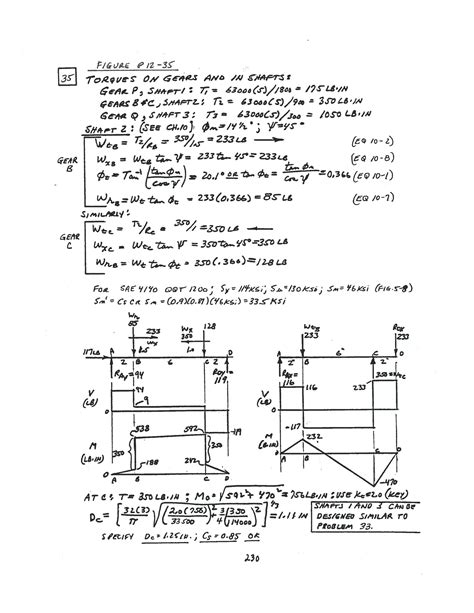 FIGURE P12-35
35 TORQUES ON GEARS AND IN SHAFTS:
GEAR P, SHAFT 1: T1 = 63000(5)/1800 = 175 LB·IN
GEARS B&C, SHAFT 2: T2 = 63000(5)/900 = 350 LB·IN
GEAR Q, SHAFT 3: T3 = 63000(5)/300 = 1050 LB·IN
SHAFT 2: (SEE CH.10) Φn = 14½°; ψ = 45°
GEAR B
WtB = T2/RB = 350/1.5 = 233 LB (EQ 10-2)
WxB = WtB tan ψ = 233 tan 45° = 233 LB (EQ 10-8)
Φt = Tan⁻¹(tan Φn/cos ψ) = 20.1° OR tan Φt = tan Φn/cos ψ = 0.366 (EQ 10-1)
WrB = Wt tan Φt = 233(0.366) = 85 LB (EQ 10-7)
SIMILARLY:
GEAR C
WtC = T2/RC = 350/1 = 350 LB
WxC = WtC tan ψ = 350 tan 45° = 350 LB
WrB = Wt tan Φt = 350(.366) = 128 LB
FOR SAE 4140 OQT 1200; Sy = 114 KSi; Su = 130 KSi; Sn = 46 KSi (FIG. 5-8)
Sn' = Cs CR Sn = (0.9)(0.81)(46 KSi) = 33.5 KSi
WrB 85 233 Wx WxC 350 128
117 LB A B C D
2 6 2
RAy = 94 RDy = 119
V (LB) 94 9 -119
0
M (LB·IN) 350 538 592 350
188 242
0 A B C D
WtB 233 RDx 233
A B C D
2" 6" 2"
RAx = 116 350 = WtC
V (LB) 116 233
0
-117
M (LB·IN) 232
0 A B C D
-470
AT C: T = 350 LB·IN; MC = √592² + 470² = 756 LB·IN: USE Kt = 2.0 (KEY)
DC = [32(3)/π √(2.0(756)/33500)² + 3/4(350/114000)²]^1/3 = 1.11 IN
SHAFTS 1 AND 3 CAN BE DESIGNED SIMILAR TO PROBLEM 33.
SPECIFY DC = 1.25 IN.; Cs = 0.85 OK
230